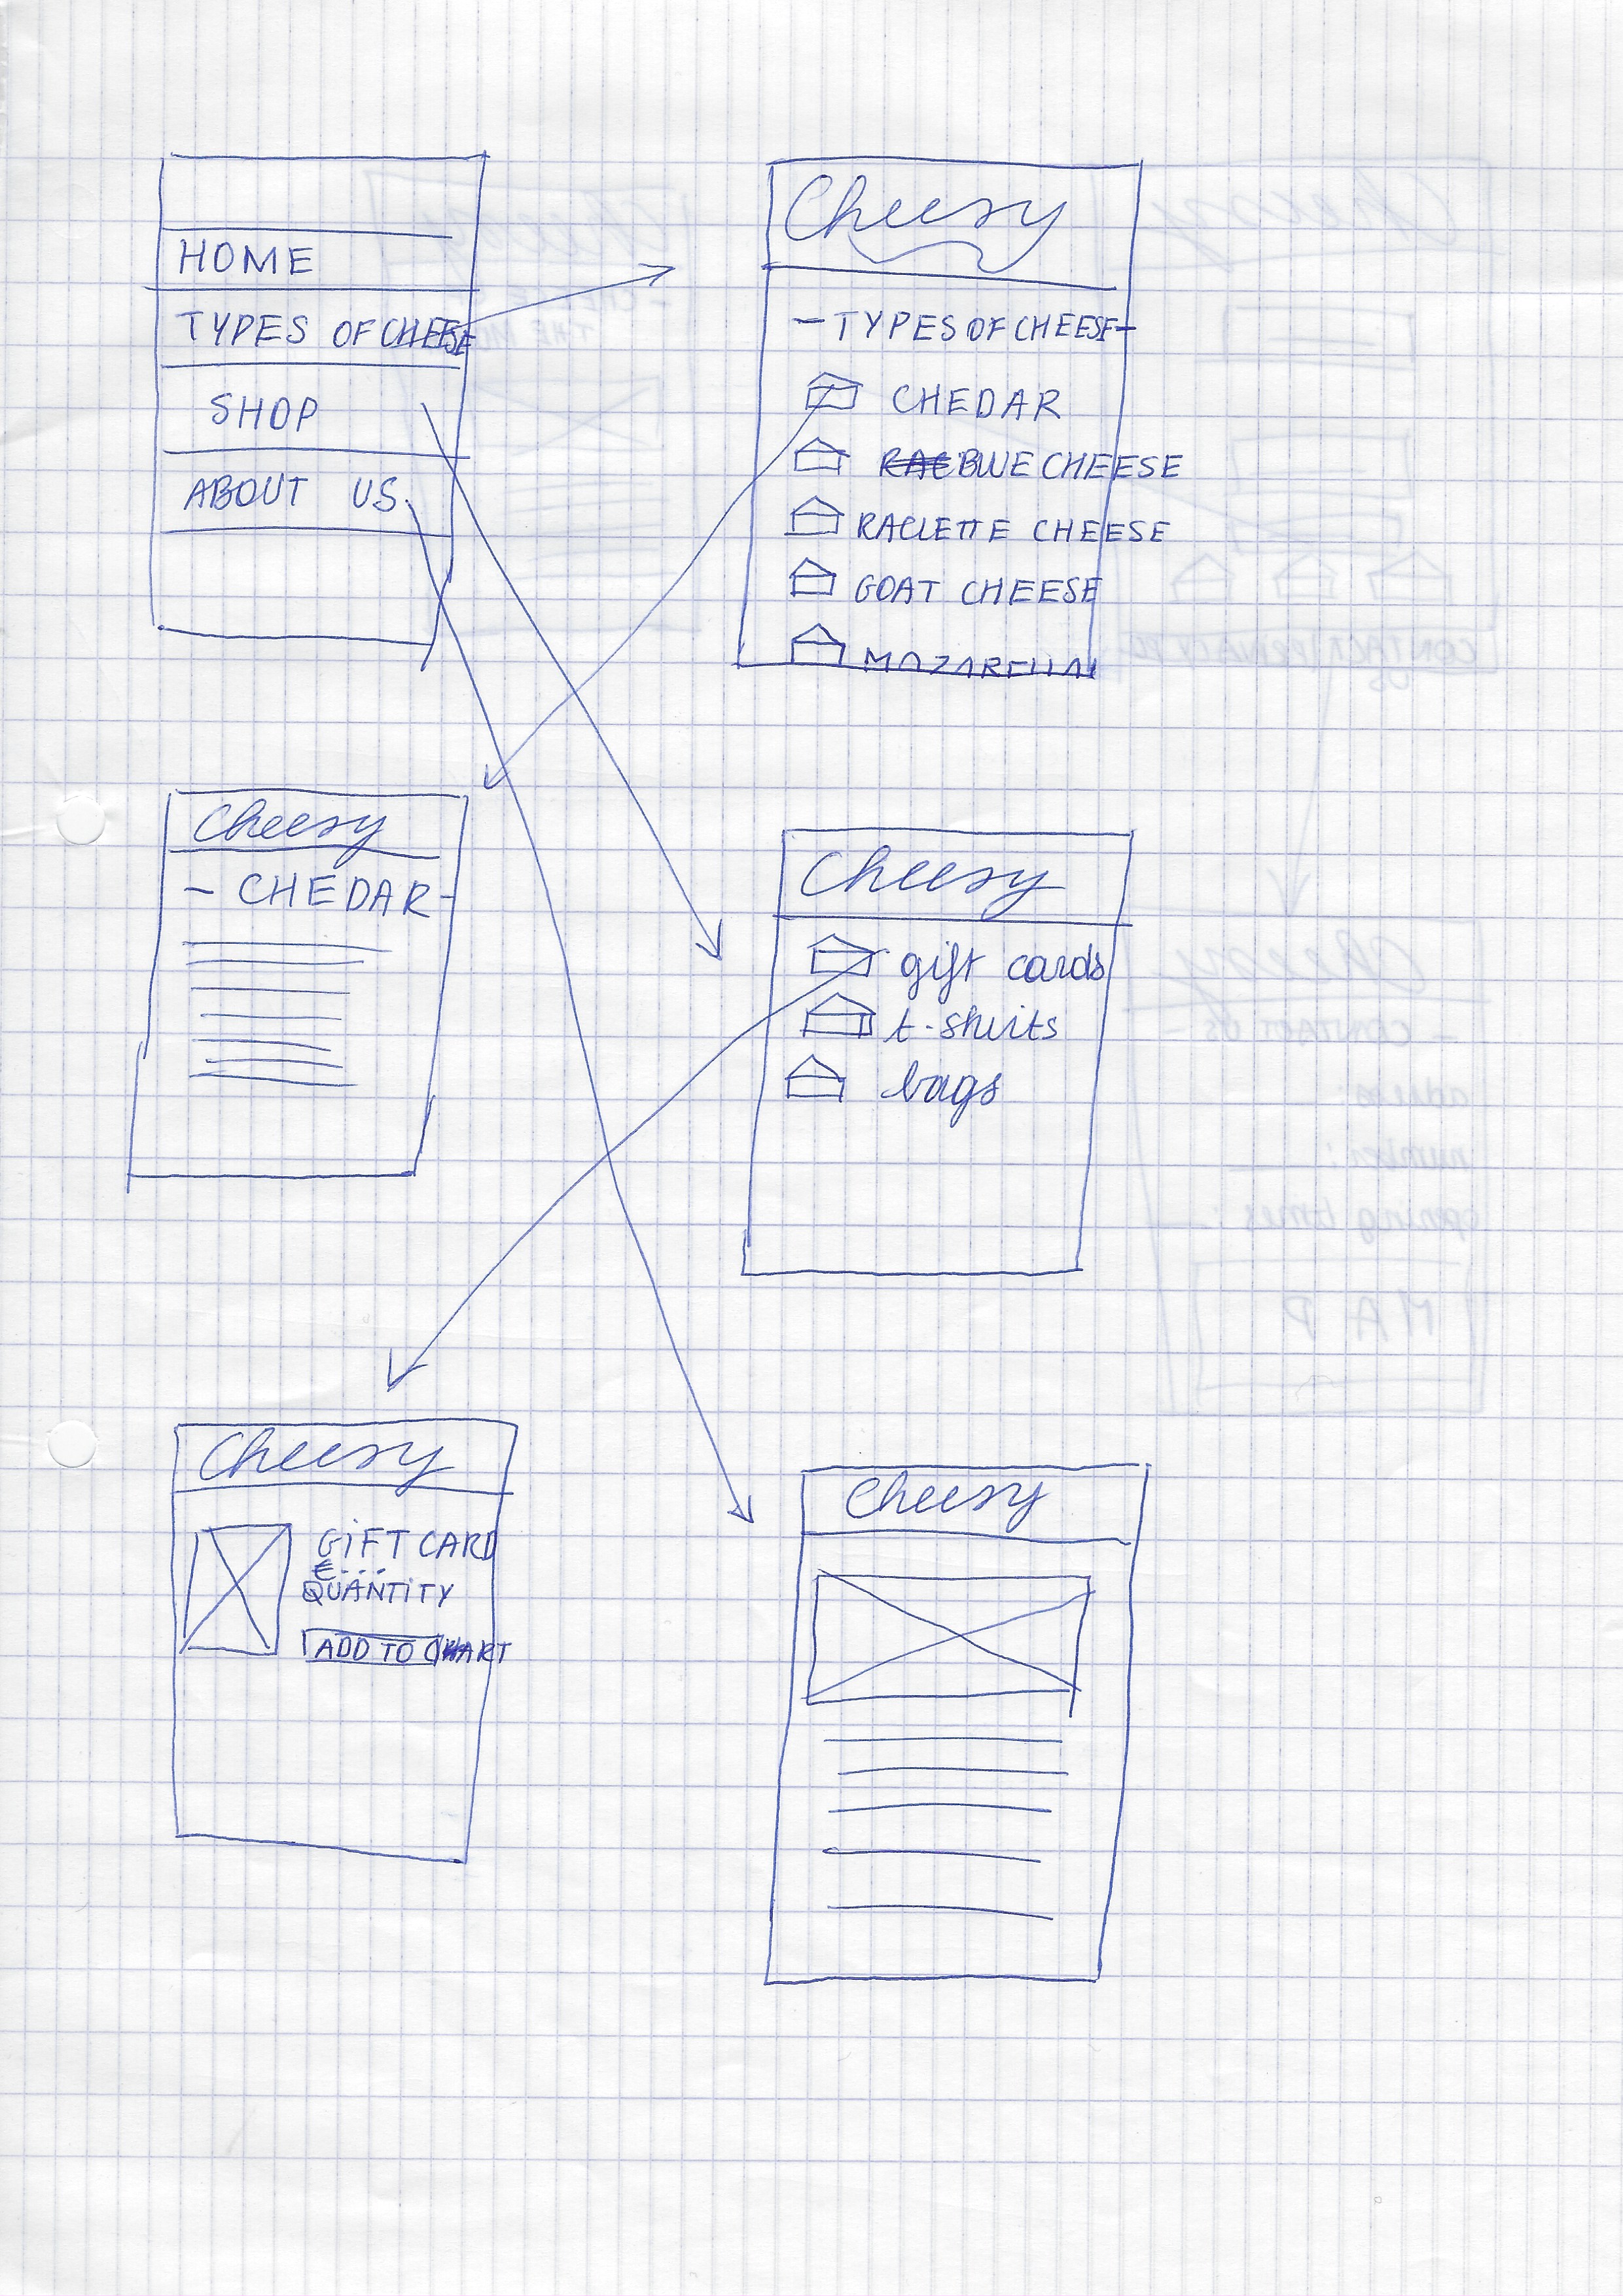 HOME
TYPES OF CHEESE
SHOP
ABOUT US
Cheesy
- TYPES OF CHEESE -
CHEDAR
BLUE CHEESE
RACLETTE CHEESE
GOAT CHEESE
MOZARELLA
Cheesy
- CHEDAR -
Cheesy
gift cards
t-shirts
bags
Cheesy
GIFT CARD
€....
QUANTITY
ADD TO CART
Cheesy